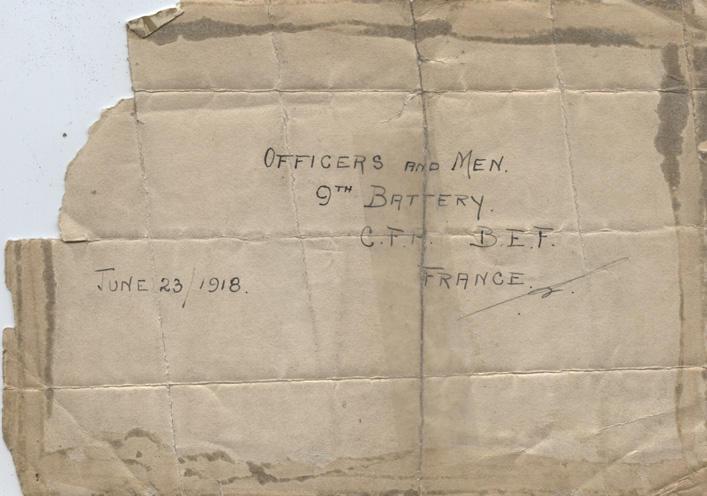 OFFICERS AND MEN.
9TH BATTERY.
C.F.A. B.E.F.
FRANCE.
JUNE 23/1918.